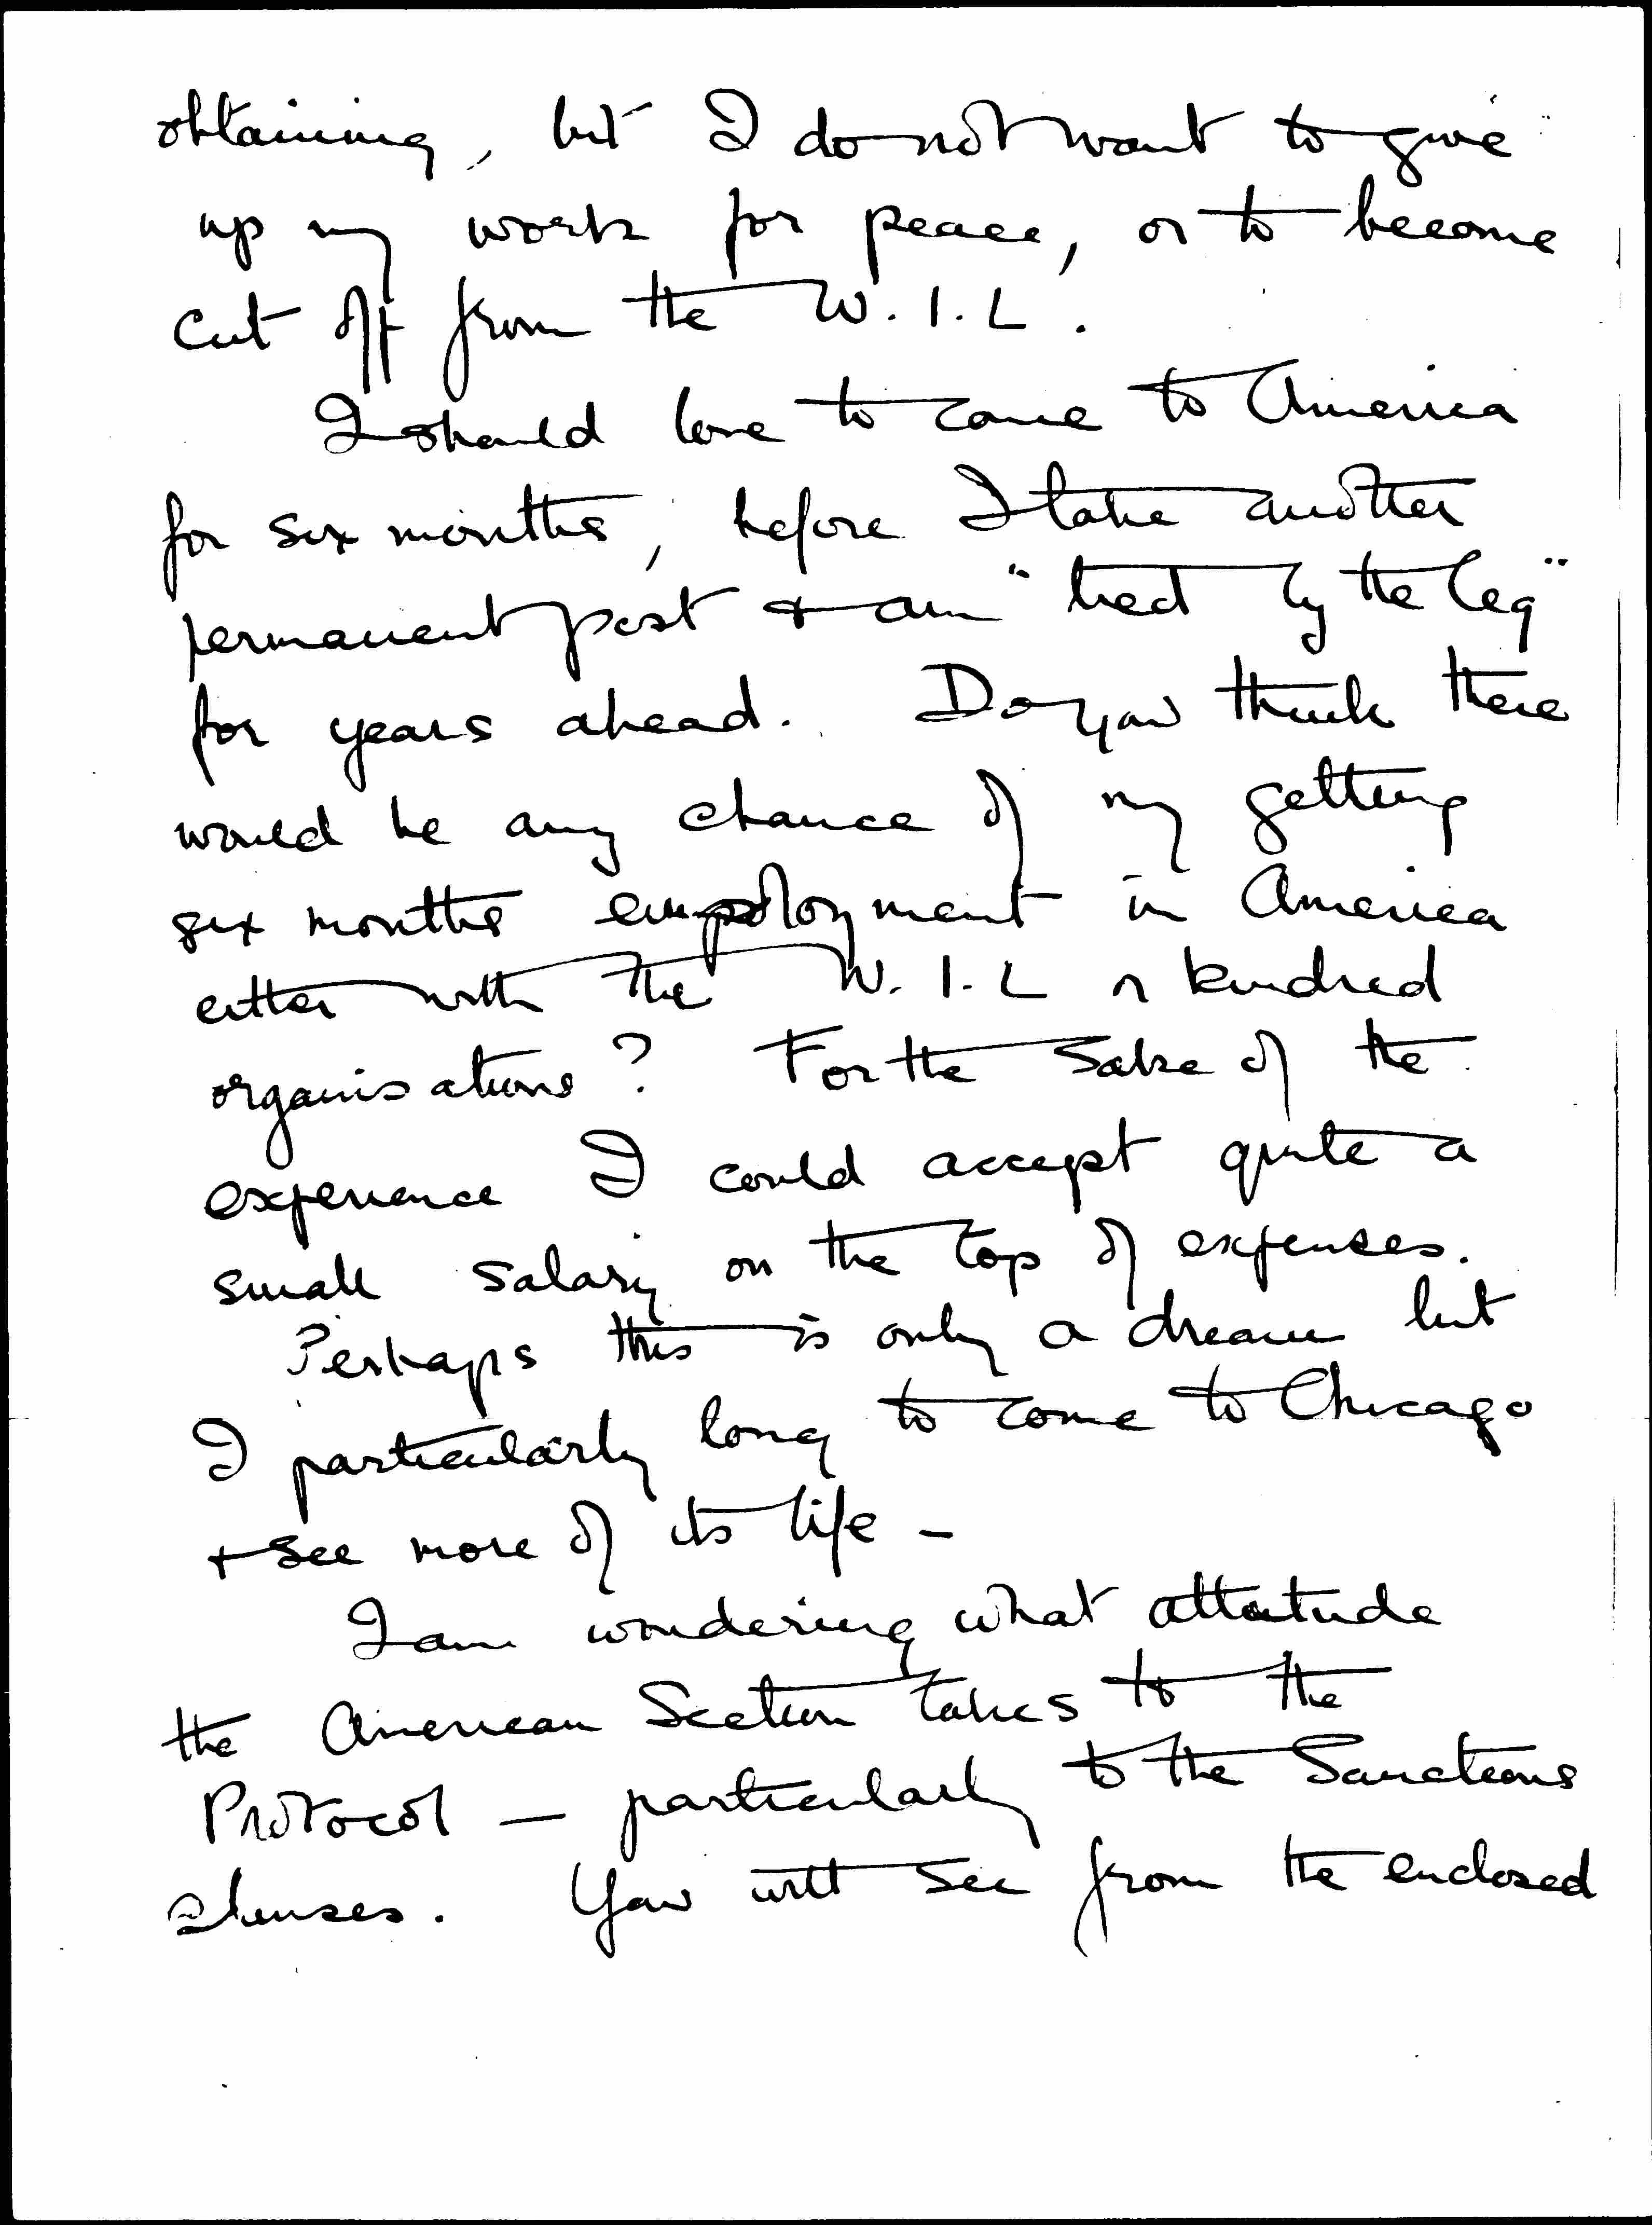 obtaining, but I do not want to give
up my work for peace, or to become
cut off from the W.I.L.
I should love to come to America
for six months, before I take another
permanent post & am "tied by the leg"
for years ahead. Do you think there
would be any chance of my getting
six months employment in America
either with the W.I.L or kindred
organisations? For the sake of the
experience I could accept quite a
small salary on the top of expenses.
Perhaps this is only a dream but
I particularly long to come to Chicago
& see more of its life -
I am wondering what attitude
the American Section takes to the
Protocol — particularly to the Sanctions
clauses. You will see from the enclosed